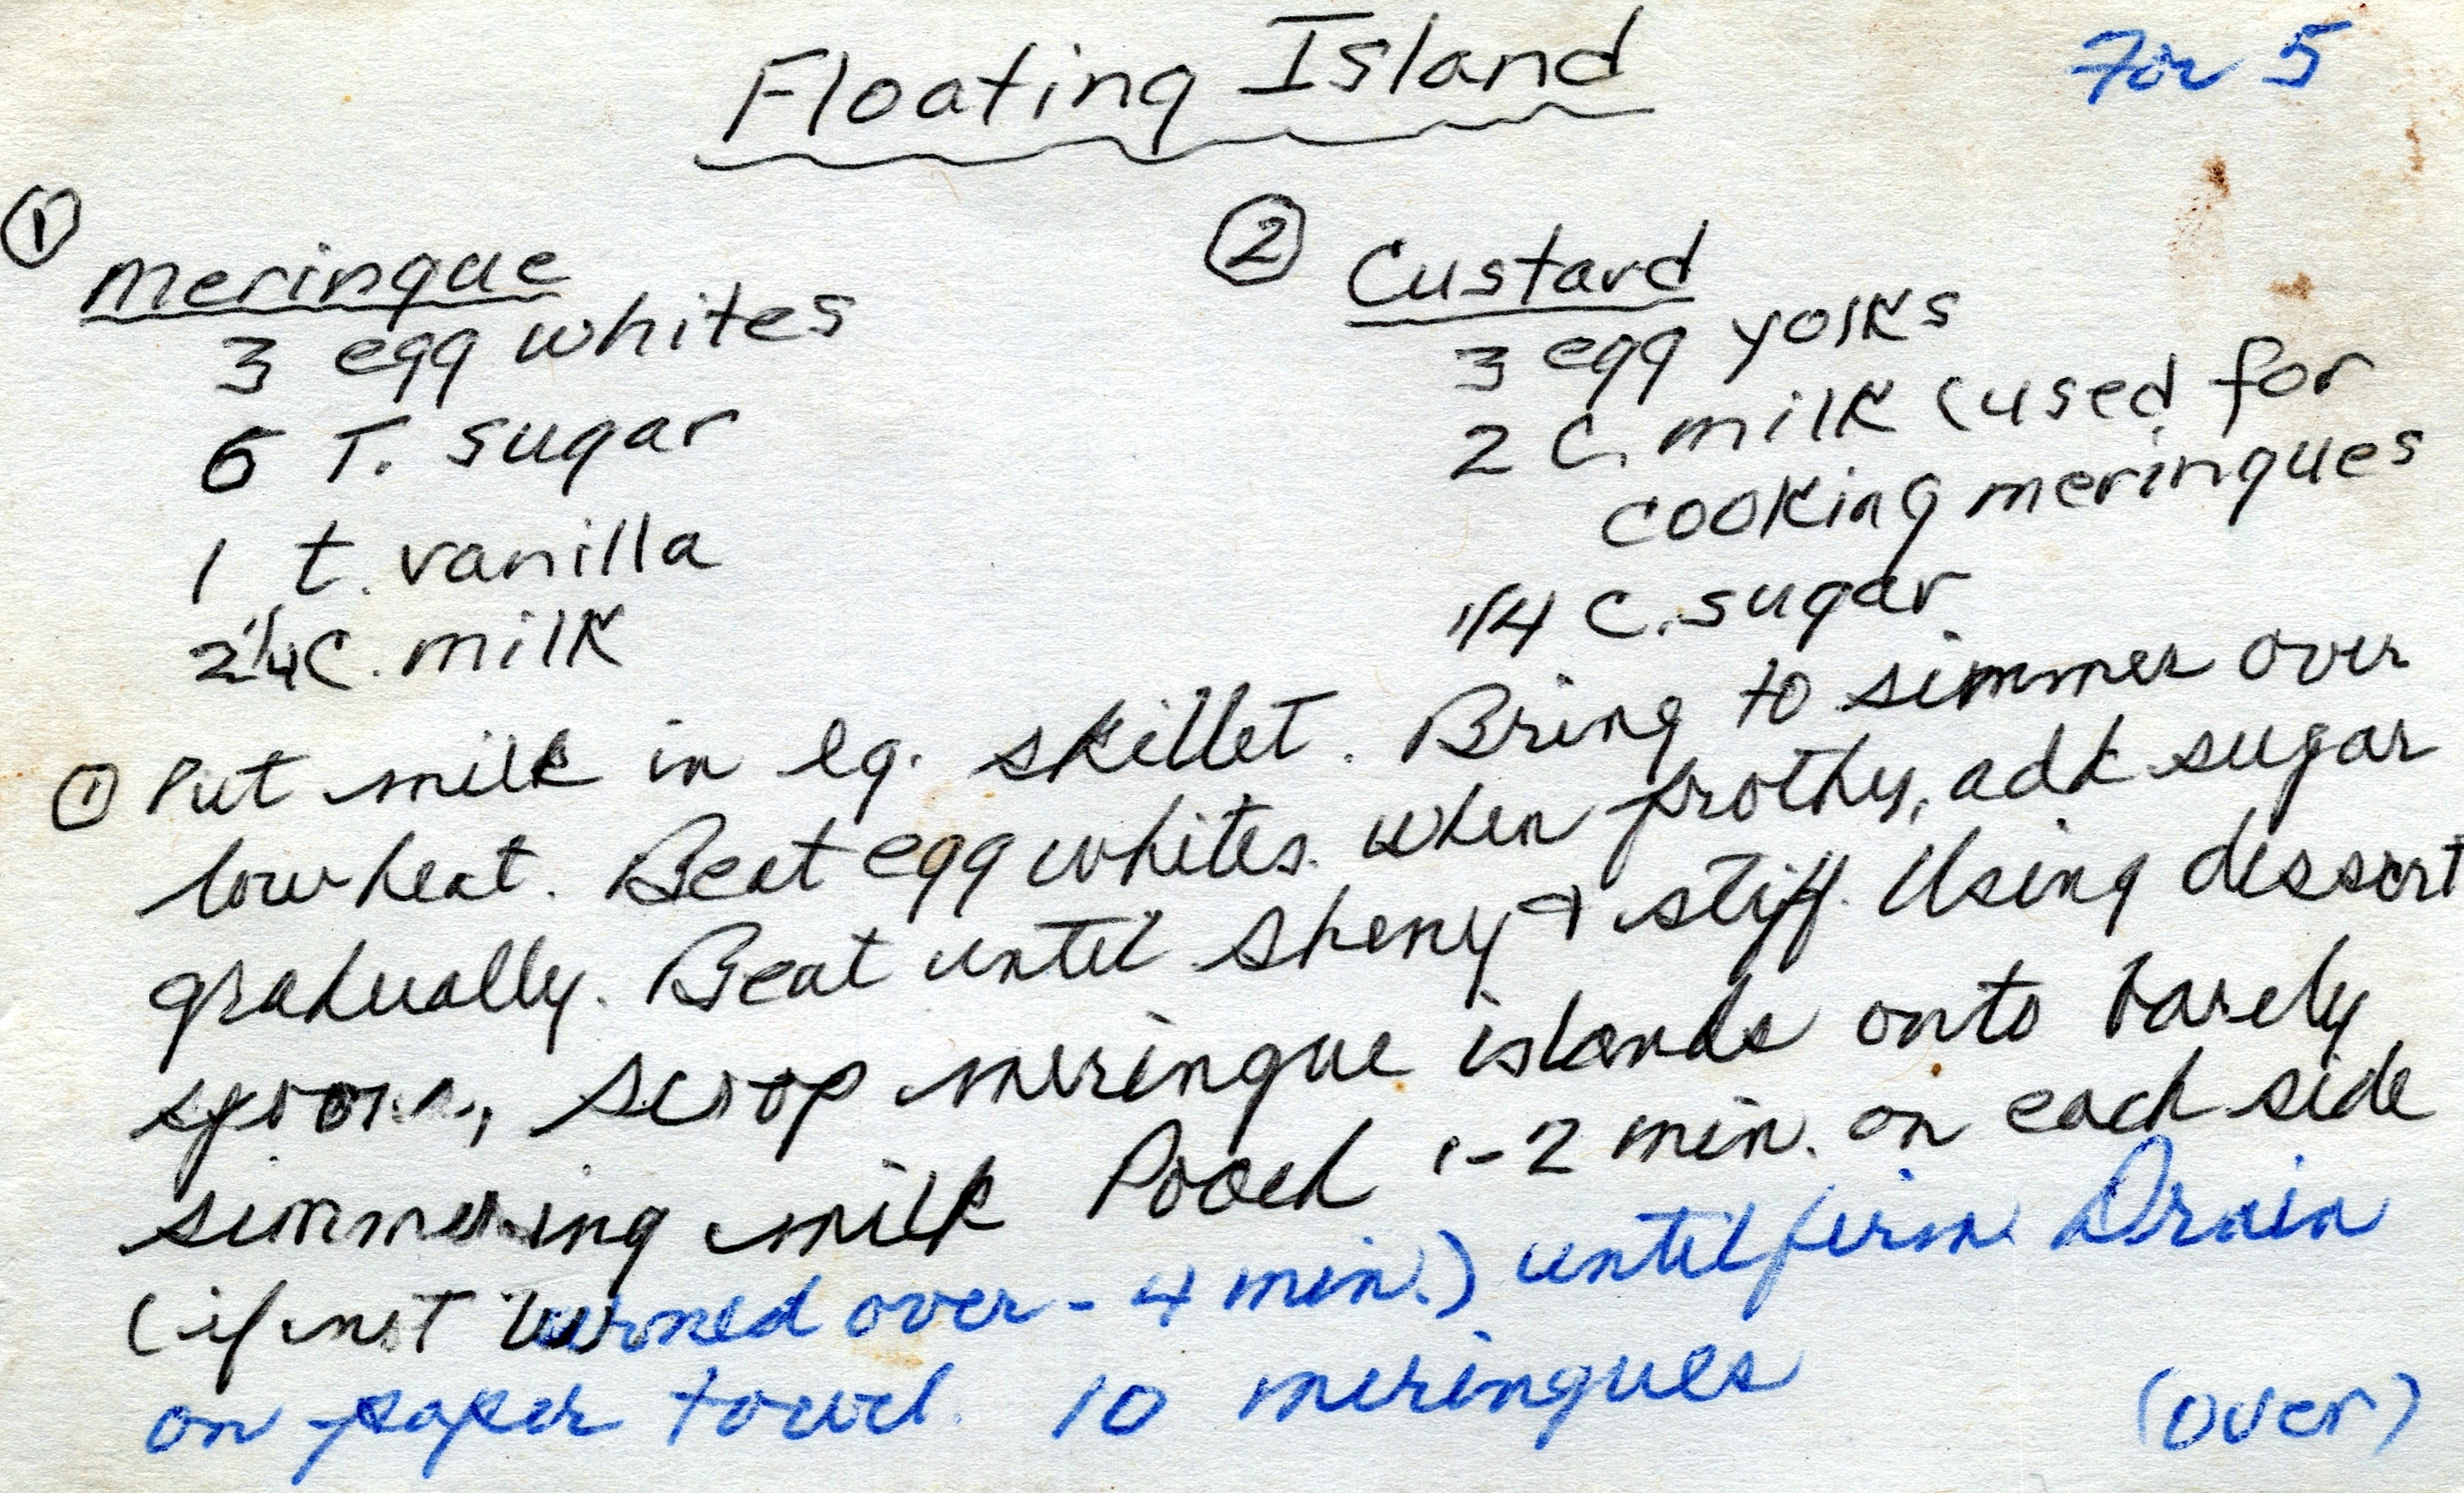 Floating Island
For 5
① Meringue
3 egg whites
6 T. sugar
1 t. vanilla
2 1/4 C. milk
② Custard
3 egg yolks
2 C. milk (used for
cooking meringues
1/4 C. sugar
① Put milk in lg. skillet. Bring to simmer over
low heat. Beat egg whites. When frothy, add sugar
gradually. Beat until shiny & stiff. Using dessert
spoon, scoop meringue islands onto barely
simmering milk Poach 1-2 min. on each side
(if not turned over - 4 min.) until firm. Drain
on paper towel. 10 meringues
(over)